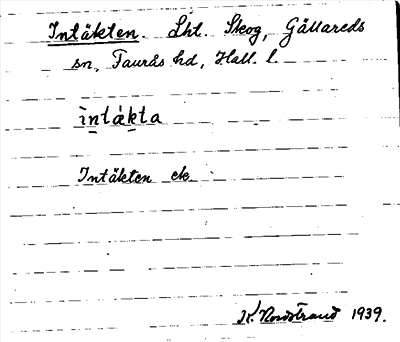 Intäkten. Lht. Skog, Gällareds
sn, Faurås hd, Hall. l.
ìntákta
Intäkten ek.
K. Nordstrand 1939.